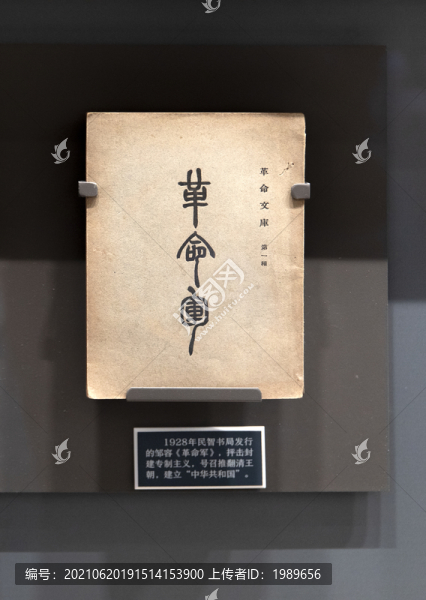 革命文庫 第一種
革命軍
1928年民智书局发行
的邹容《革命军》，抨击封
建专制主义，号召推翻清王
朝，建立“中华共和国”。
编号：20210620191514153900 上传者ID：1989656